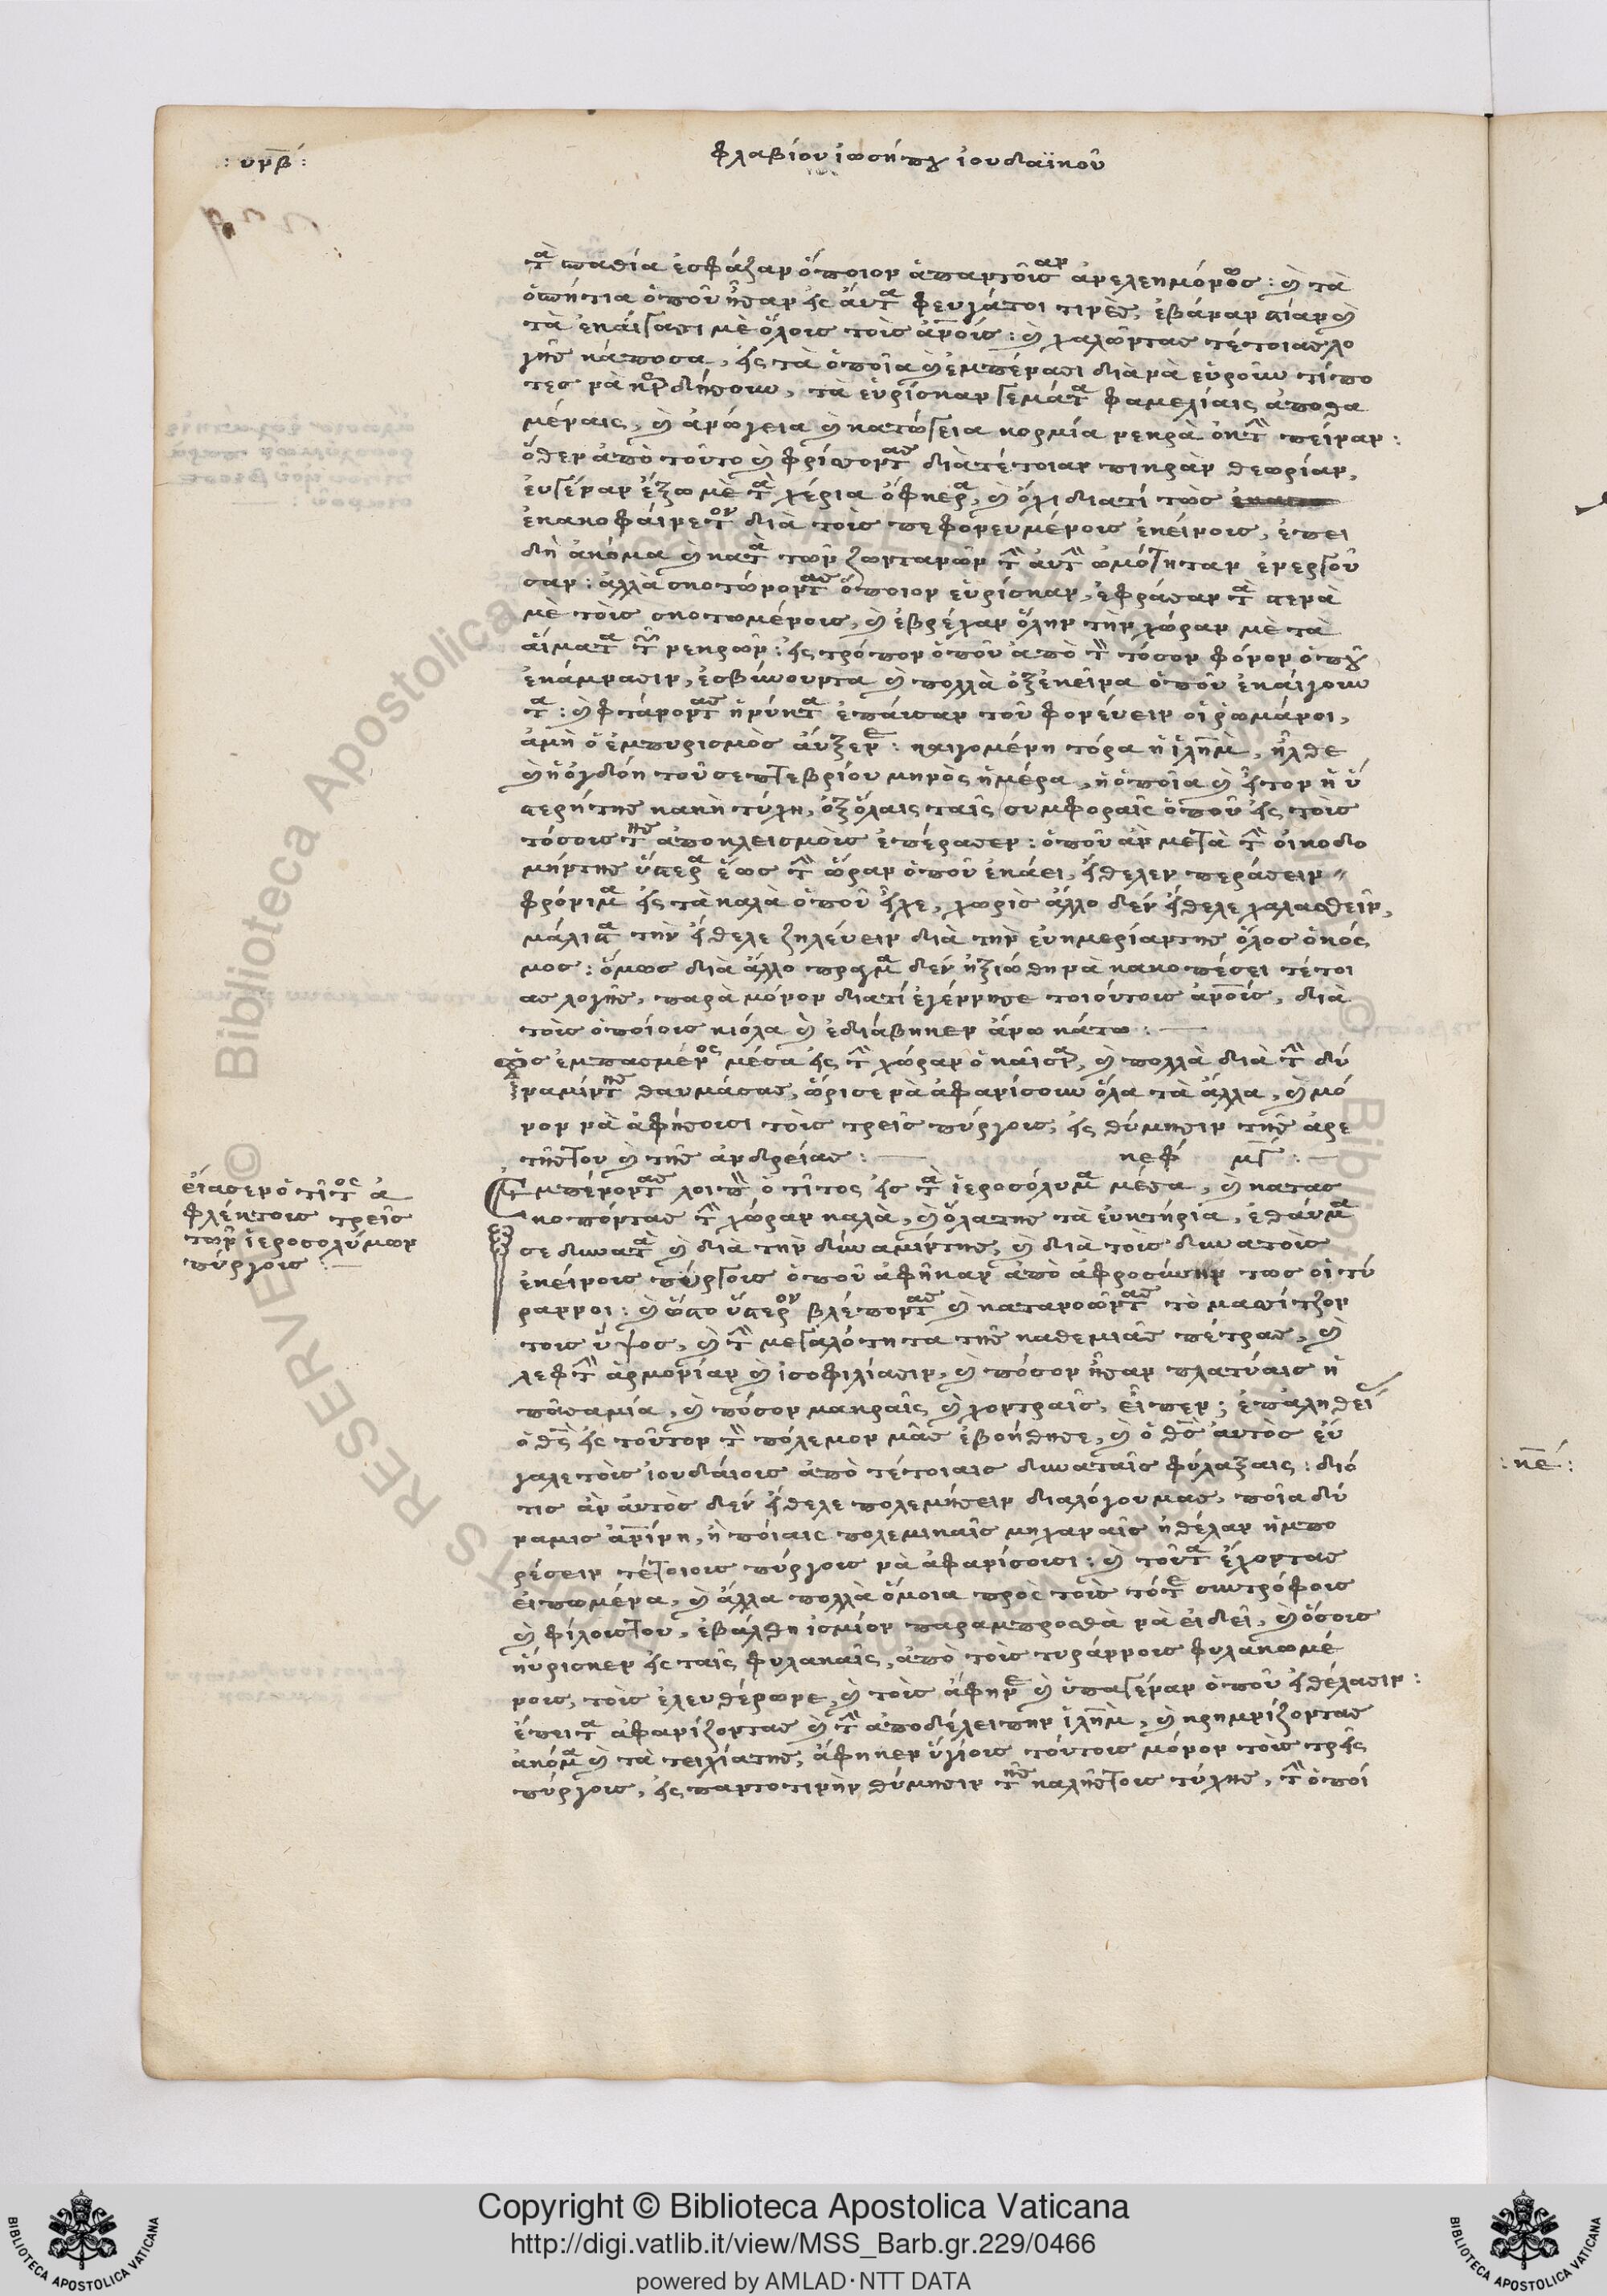 : υνβ :
φλαβίου ἰωσήπου ἰουδαϊκοῦ
τὰ σπαθία ἐσφάζαν ὅποιον ἀπαντοῦσαν ἀνελεημόνως : καὶ τὰ
ὀσπήτια ὁποῦ ἦσαν εἰς ἄυτα φευγάτοι τινὲς, ἐβάναν στίαν καὶ
τὰ ἐκαίγασι μὲ ὅλους τοὺς ἀνους : καὶ χαλῶντας τέτοιας λο
γῆς κάποσα, εἰς τὰ ὁποῖα καὶ ἐμπένασι διὰ νὰ εὑροῦν τίπο
τες νὰ κερδήσουν, τὰ εὑρίσκαν γεμάτα φαμελίαις ἀποθα
μέναις, καὶ ἀνώγεια καὶ κατώγεια κορμία νεκρὰ ἐκ τὴν πείναν :
ὅθεν ἀπὸ τοῦτο καὶ φρίσσοντας διὰ τέτοιαν πικρὰν θεωρίαν,
ἐυγέναν ἔξω μὲ τὰ χέρια εὔκερα, καὶ ὄχι διατί τὼς
ἐκακοφαίνετον διὰ τοὺς πεφονευμένους ἐκείνους, ἐπει
δὴ ἀκόμα καὶ κατὰ τῶν ζωντανῶν τὴν ἀυτὴν ὠμότηταν ἐνεργοῦ
σαν : ἀλλὰ σκοτώνοντας ὅποιον εὑρίσκαν, ἐφράσαν τὰ στενὰ
μὲ τοὺς σκοτωμένους, καὶ ἐβρέχαν ὅλην τὴν χώραν μὲ τὰ
αἵματα τῶν νεκρῶν : εἰς τρόπον ὁποῦ ἀπὸ τὸν τόσον φόνον ὁποῦ
ἐκάμνασιν, ἐσβύνουντα καὶ πολλὰ ἐξ ἐκεῖνα ὁποῦ ἐκαίγουν
τα : καὶ φτάνοντας ἡ νύκτα ἐπάυσαν τοῦ φονέυειν οἱ ῥωμάνοι,
ἀμὴ ὁ ἐμπυρισμὸς ἄυξενε : καιγομένη τόρα ἡ ἱλημ, ἦλθε
καὶ ἡ ὀγδόη τοῦ σεπτεβρίου μηνὸς ἡμέρα, ἡ ὁποῖα καὶ ἦτον ἡ ὑ
στερή της κακὴ τύχη, ἐξ ὅλαις ταῖς συμφοραῖς ὁποῦ εἰς τοὺς
τόσους της ἀποκλεισμοὺς ἐπέρασεν : ὁποῦ ἂν μετὰ τὴν οἰκοδο
μήν της ὕστερα ἕως τὴν ὥραν ὁποῦ ἐκάει, ἤθελεν περάσειν
φρόνιμα εἰς τὰ καλὰ ὁποῦ εἶχε, χωρὶς ἄλλο δὲν ἤθελε χαλασθεῖν,
μάλιστα τὴν ἤθελε ζηλέυειν διὰ τὴν ἐυημερίαν της ὅλος ὁ κόσ
μος : ὅμως διὰ ἄλλο πραγμα δὲν ἠξιώθη νὰ κακοπέσει τέτοι
ας λογῆς, παρὰ μόνον διατὶ ἐγέννησε τοιούτους ἀνους, διὰ
τοὺς ὁποίους κιόλα καὶ ἐδιάβηκεν ἄνω κάτω :
ἐμπασμένος μέσα εἰς τὴν χώραν ὁ καῖσαρ, καὶ πολλὰ διὰ τὴν δύ
ναμίν της θαυμάσας, ὥρισε νὰ ἀφανίσουν ὅλα τὰ ἄλλα, καὶ μό
νον νὰ ἀφήσουσι τοὺς τρεῖς πύργους, εἰς θύμησιν τῆς ἀρε
τῆς του καὶ τῆς ἀνδρείας : κεφ μγ :
Ἐμπένοντας λοιπὸν ὁ τῖτος εἰς τὰ ἱεροσόλυμα μέσα, καὶ κατασ
κοπόντας τὴν χώραν καλὰ, καὶ ὅλα της τὰ ἐυκτήρια, ἐθάυμα
σε δυνατὰ καὶ διὰ τὴν δύναμίν της, καὶ διὰ τοὺς δυνατοὺς
ἐκείνους πύργους ὁποῦ ἀφῆκαν ἀπὸ ἀφροσύνην τως οἱ τύ
ραννοι : καὶ ὥστο ὕστερον βλέποντας καὶ κατανοῶντας τὸ μασίτζον
τους ὕψος, καὶ τὴν μεγαλότητα τῆς καθεμιᾶς πέτρας, καὶ
λεφτὴν ἁρμονίαν καὶ ἰσοφιλίασιν, καὶ πόσον ἦσαν πλατύαις ἡ
πᾶσα μία, καὶ πόσον μακραῖς καὶ χοντραῖς, εἶπεν ; ἐπ ἀληθεί
ὁ θς εἰς τοῦτον τὸν πόλεμον μᾶς ἐβοήθησε, καὶ ὁ θς ἀυτὸς ἐύ
γαλε τοὺς ἰουδαίους ἀπὸ τέτοιαις δυναταῖς φύλαξαις : διό
τις ἂν ἀυτὸς δὲν ἤθελε πολεμήσειν διαλόγου μας, ποῖα δύ
ναμις ἀνίνη, ἢ ποίαις πολεμικαῖς μηχαναῖς ἠθέλαν ἠμπο
ρέσειν τέτοιους πύργους νὰ ἀφανίσουσι : καὶ τοῦτα ἔχοντας
εἰπωμένα, καὶ ἄλλα πολλὰ ὅμοια πρὸς τοὺς τότε συντρόφους
καὶ φίλους του, ἐβάλθη ἰσμίον παραμπροσθὰ νὰ εἰδεῖ, καὶ ὅσους
ηὕρισκεν εἰς ταῖς φυλακαῖς, ἀπὸ τοὺς τυράννους φυλακωμέ
νους, τοὺς ἐλευθέρωνε, καὶ τοὺς ἄφηνε καὶ ὑπαγέναν ὁποῦ ἠθέλασιν :
ἔπειτα ἀφανίζοντας καὶ τὴν ἀποδέλειπην ἱλημ, καὶ κρημνίζοντας
ἀκόμα καὶ τὰ τειχία της, ἄφηκεν ὑγίους τούτους μόνον τοὺς τρεῖς
πύργους, εἰς παντοτινὴν θύμησιν τῆς καλῆς του τύχης, τὴν ὁποί
εἴασεν ὁ τῖτος ἀ
φλέκτους τρεῖς
τῶν ἱεροσολύμων
πύργους :
: κε :
Copyright © Biblioteca Apostolica Vaticana
http://digi.vatlib.it/view/MSS_Barb.gr.229/0466
powered by AMLAD·NTT DATA
BIBLIOTECA APOSTOLICA VATICANA
BIBLIOTECA APOSTOLICA VATICANA